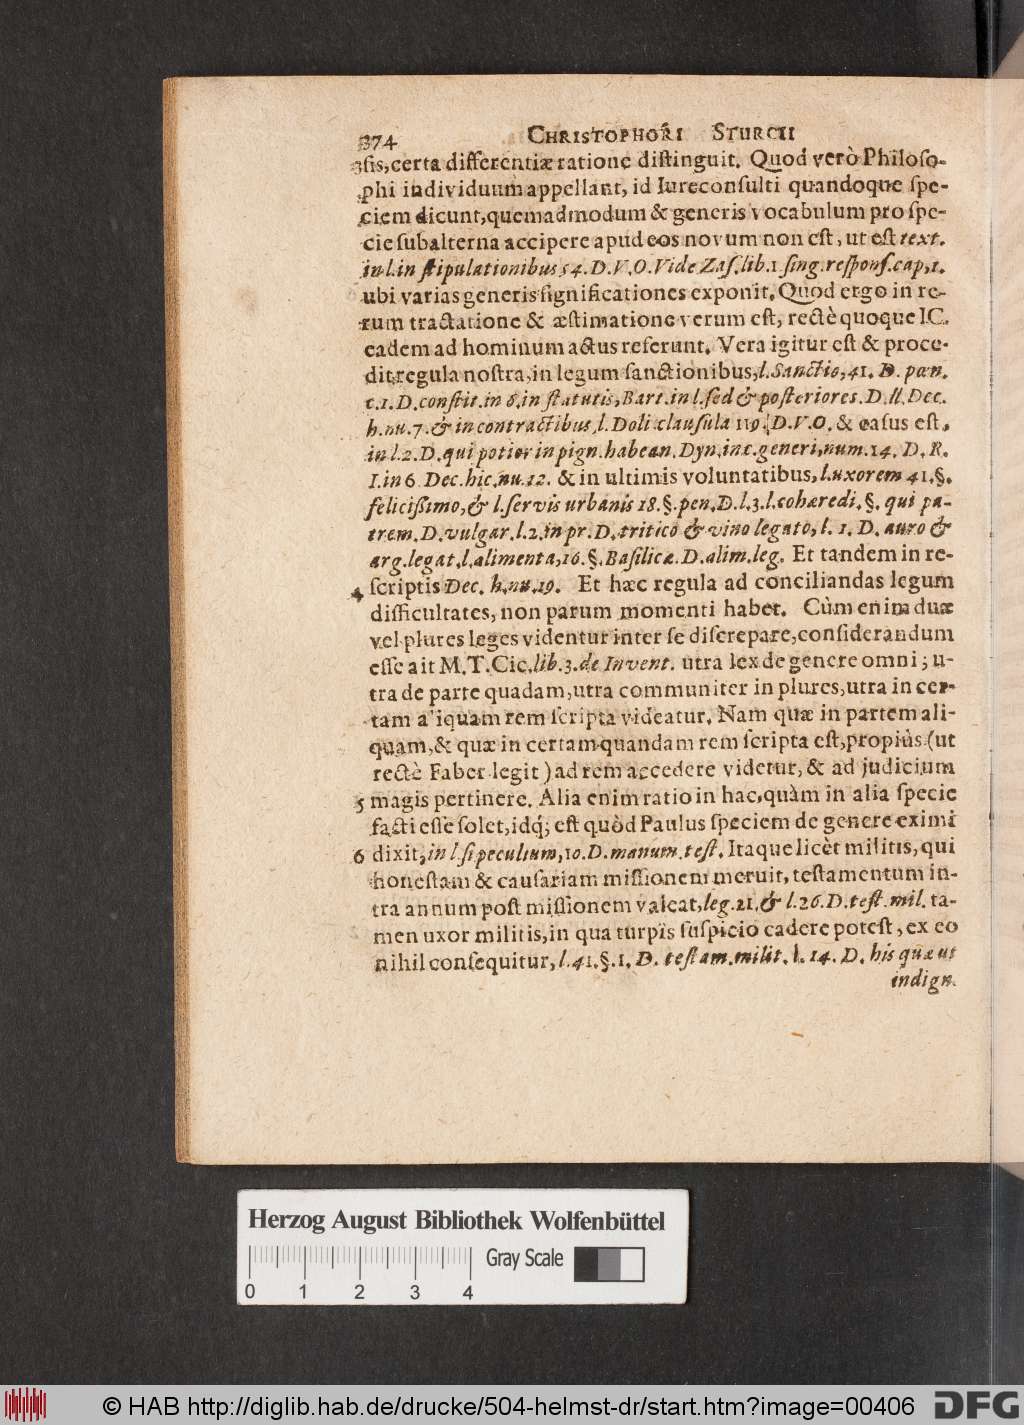 374 CHRISTOPHORI STURCII
3 sis, certa differentiæ ratione distinguit. Quod verò Philoso-
phi individuum appellant, id Iureconsulti quandoque spe-
ciem dicunt, quemadmodum & generis vocabulum pro spe-
cie subalterna accipere apud eos novum non est, ut est text.
in l. in stipulationibus 54. D. V. O. Vide Zas. lib. 1 sing. respons. cap, 1.
ubi varias generis significationes exponit. Quod ergo in re-
rum tractatione & æstimatione verum est, rectè quoque IC.
eadem ad hominum actus referunt. Vera igitur est & proce-
dit regula nostra, in legum sanctionibus, l. Sanctio, 41. D. pœn.
c. 1. D. constit. in 6. in statutis, Bart. in l. sed & posteriores. D. ll. Dec.
h. nu. 7. & in contractibus, l. Doli clausula 119. D. V. O. & casus est,
in l. 2. D. qui potior in pign. habean. Dyn. in c. generi, num. 14. D. R.
I. in 6. Dec. hic. nu. 12. & in ultimis voluntatibus, l. uxorem 41. §.
felicissimo, & l. servis urbanis 18. §. pen. D. l. 3. l. cohæredi. §. qui pa-
trem. D. vulgar. l. 2. in pr. D. tritico & vino legato, l. 1. D. auro &
arg. legat. l. alimenta, 16. §. Basilicæ. D. alim. leg. Et tandem in re-
4 scriptis Dec. h. nu. 19. Et hæc regula ad conciliandas legum
difficultates, non parum momenti habet. Cùm enim duæ
vel plures leges videntur inter se discrepare, considerandum
esse ait M. T. Cic. lib. 3. de Invent. utra lex de genere omni; u-
tra de parte quadam, utra communiter in plures, utra in cer-
tam a'iquam rem scripta videatur. Nam quæ in partem ali-
quam, & quæ in certam quandam rem scripta est, propiùs (ut
rectè Faber legit) ad rem accedere videtur, & ad judicium
5 magis pertinere. Alia enim ratio in hac, quàm in alia specie
facti esse solet, idq; est quòd Paulus speciem de genere eximi
6 dixit, in l. si peculium, 10. D. manum. test. Itaque licèt militis, qui
honestam & causariam missionem meruit, testamentum in-
tra annum post missionem valeat, leg. 21. & l. 26. D. test. mil. ta-
men uxor militis, in qua turpis suspicio cadere potest, ex eo
nihil consequitur, l. 41. §. 1. D. testam. milit. l. 14. D. his quæ ut
indign.
Herzog August Bibliothek Wolfenbüttel
Gray Scale
0 1 2 3 4
© HAB http://diglib.hab.de/drucke/504-helmst-dr/start.htm?image=00406
DFG